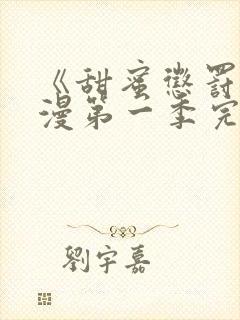 《甜蜜懲罰
漫第一季完
劉宇嘉